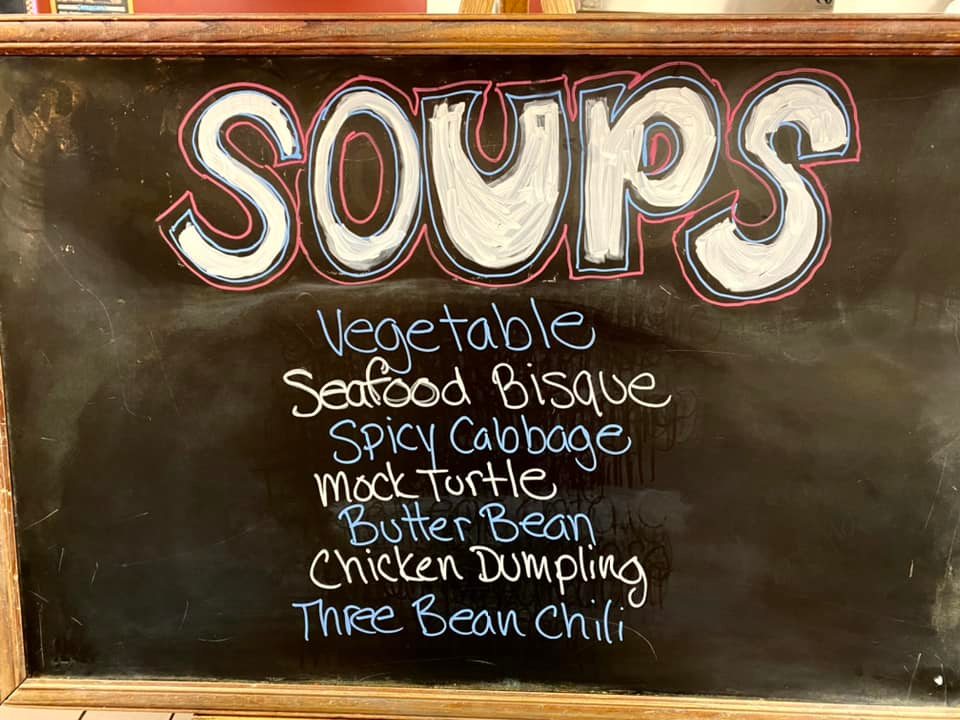 SOUPS
Vegetable
Seafood Bisque
Spicy Cabbage
Mock Turtle
Butter Bean
Chicken Dumpling
Three Bean Chili